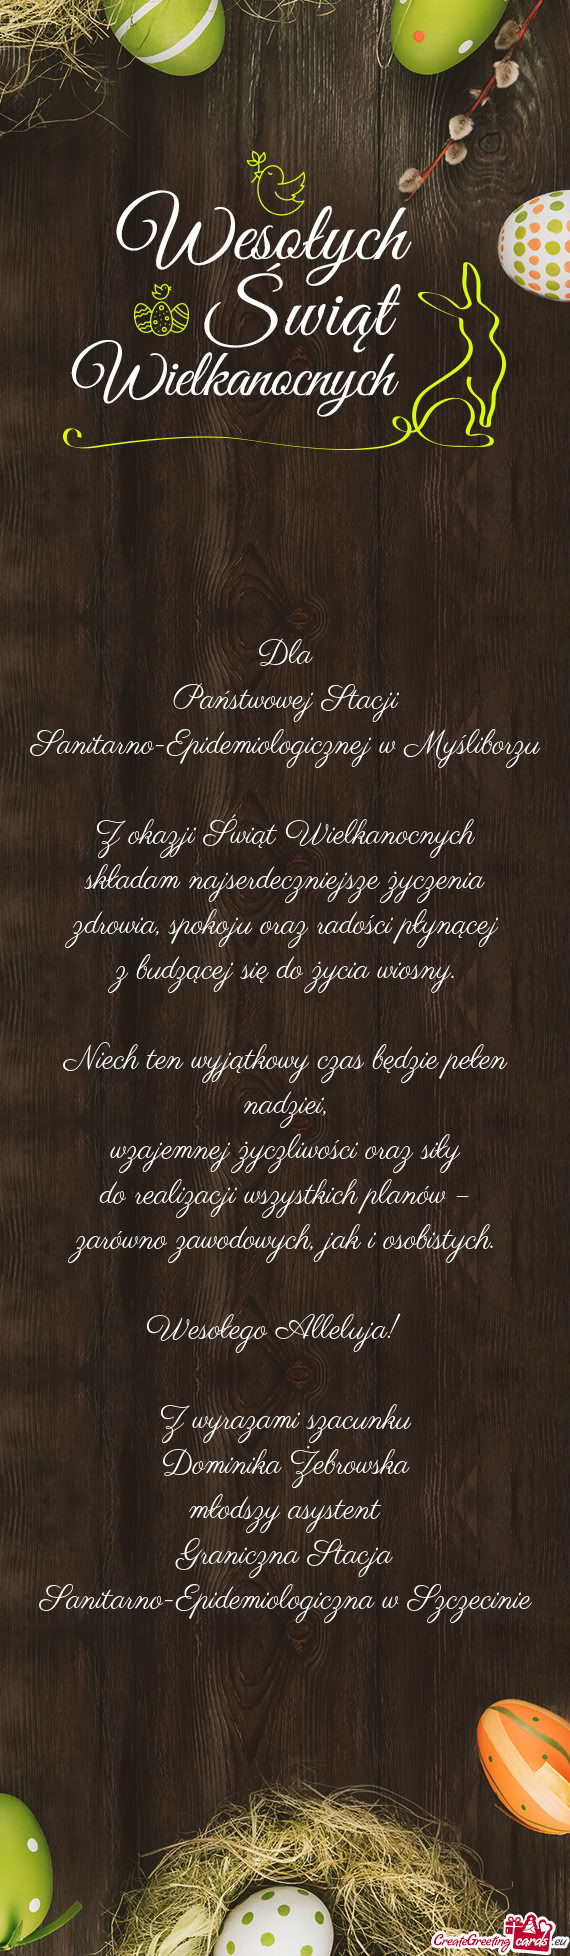 Wesołych
Świąt
Wielkanocnych
Dla
Państwowej Stacji
Sanitarno-Epidemiologicznej w Myśliborzu
Z okazji Świąt Wielkanocnych
składam najserdeczniejsze życzenia
zdrowia, spokoju oraz radości płynącej
z budzącej się do życia wiosny.
Niech ten wyjątkowy czas będzie pełen
nadziei,
wzajemnej życzliwości oraz siły
do realizacji wszystkich planów –
zarówno zawodowych, jak i osobistych.
Wesołego Alleluja!
Z wyrazami szacunku
Dominika Żebrowska
młodszy asystent
Graniczna Stacja
Sanitarno-Epidemiologiczna w Szczecinie
CreateGreetingcards.eu